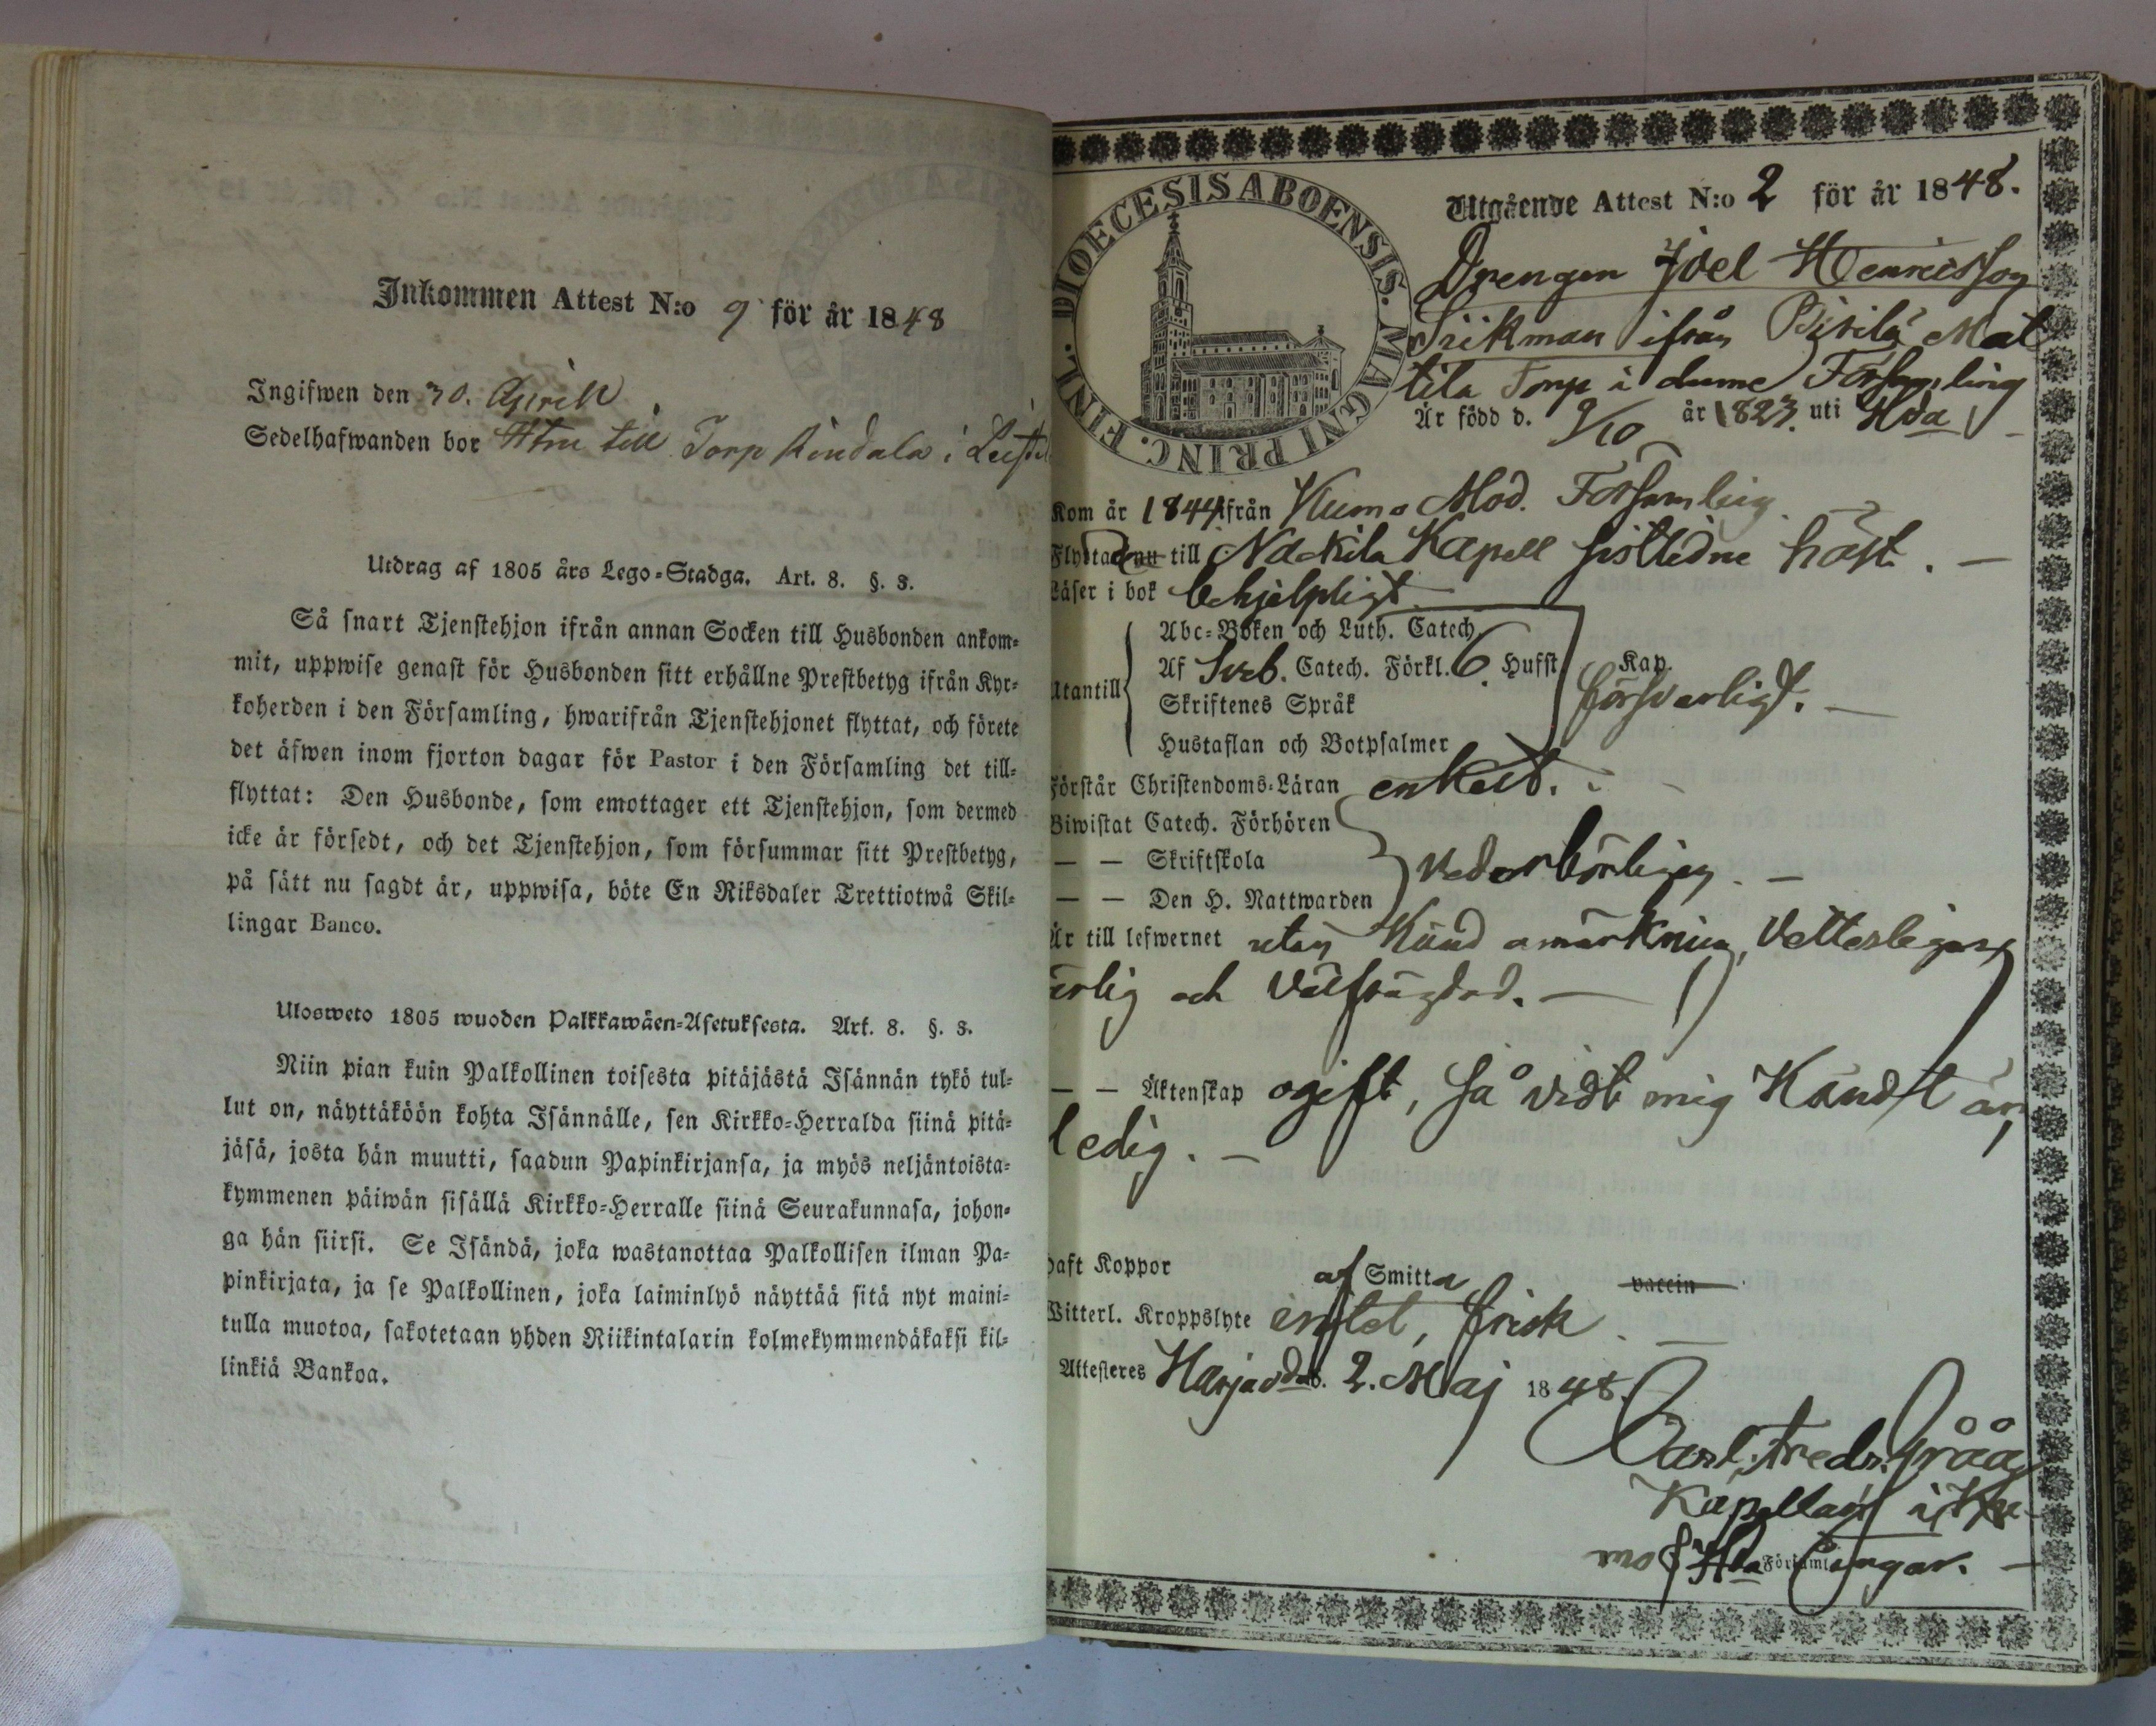 Inkommen Attest N:o 9 för år 1848
Ingifwen den 30. April
Sedelhafwanden bor till Torp i
Utdrag af 1805 års Lego-Stadga. Art. 8. §. 3.
Så snart Tjenstehjon ifrån annan Socken till Husbonden ankom-
mit, uppwise genast för Husbonden sitt erhållne Prestbetyg ifrån Kyr-
koherden i den Församling, hwarifrån Tjenstehjonet flyttat, och förete
det äfwen inom fjorton dagar för Pastor i den Församling det till-
flyttat: Den Husbonde, som emottager ett Tjenstehjon, som dermed
icke är försedt, och det Tjenstehjon, som försummar sitt Prestbetyg,
på sätt nu sagdt är, uppwisa, böte En Riksdaler Trettiotwå Skil-
lingar Banco.
Ulosweto 1805 wuoden Palkkawäen-Asetuksesta. Art. 8. §. 3.
Niin pian kuin Palkollinen toisesta pitäjästä Isännän tykö tul-
lut on, näyttäköön kohta Isännälle, sen Kirkko-Herralda siinä pitä-
jäsä, josta hän muutti, saadun Papinkirjansa, ja myös neljäntoista-
kymmenen päiwän sisällä Kirkko-Herralle siinä Seurakunnasa, johon-
ga hän siirsi. Se Isändä, joka wastanottaa Palkollisen ilman Pa-
pinkirjata, ja se Palkollinen, joka laiminlyö näyttää sitä nyt maini-
tulla muotoa, sakotetaan yhden Riikintalarin kolmekymmendäkaksi kil-
linkiä Bankoa.
DIOECESIS ABOENSIS. MAGNI PRINC. FINL.
Utgående Attest N:o 2 för år 1848.
Drengen Joel Henricsson
Siikman ifrån Pirilä Mat
tila Torp i denne Församling
Är född d. 9/10 år 1823. uti Hda
Kom år 1844 ifrån Kumo Mod. Församling.
Flyttade nu till Nackila Kapell sistledne höst.
Läser i bok behjelpligt
Utantill
Abc-Boken och Luth. Catech.
Af Sveb. Catech. Förkl. 6. Hufst. Kap.
Skriftenes Språk försvarligt.
Hustaflan och Botpsalmer
Förstår Christendoms-Läran enkelt.
Biwistat Catech. Förhören
— — Skriftskola vederbörligen.
— — Den H. Nattwarden
Är till lefwernet utan känd anmärkning, vetterligen
ärlig och välfrägdad.
— — Äktenskap ogift, så vidt mig kändt är,
ledig.
Haft Koppor af Smitta vaccin
Witterl. Kroppslyte intet, frisk
Attesteres Harjavalda d. 2. Maj 1848.
Carl Fredr. Gråå
Kapellan i Ku-
mo & Hda Församlingar.